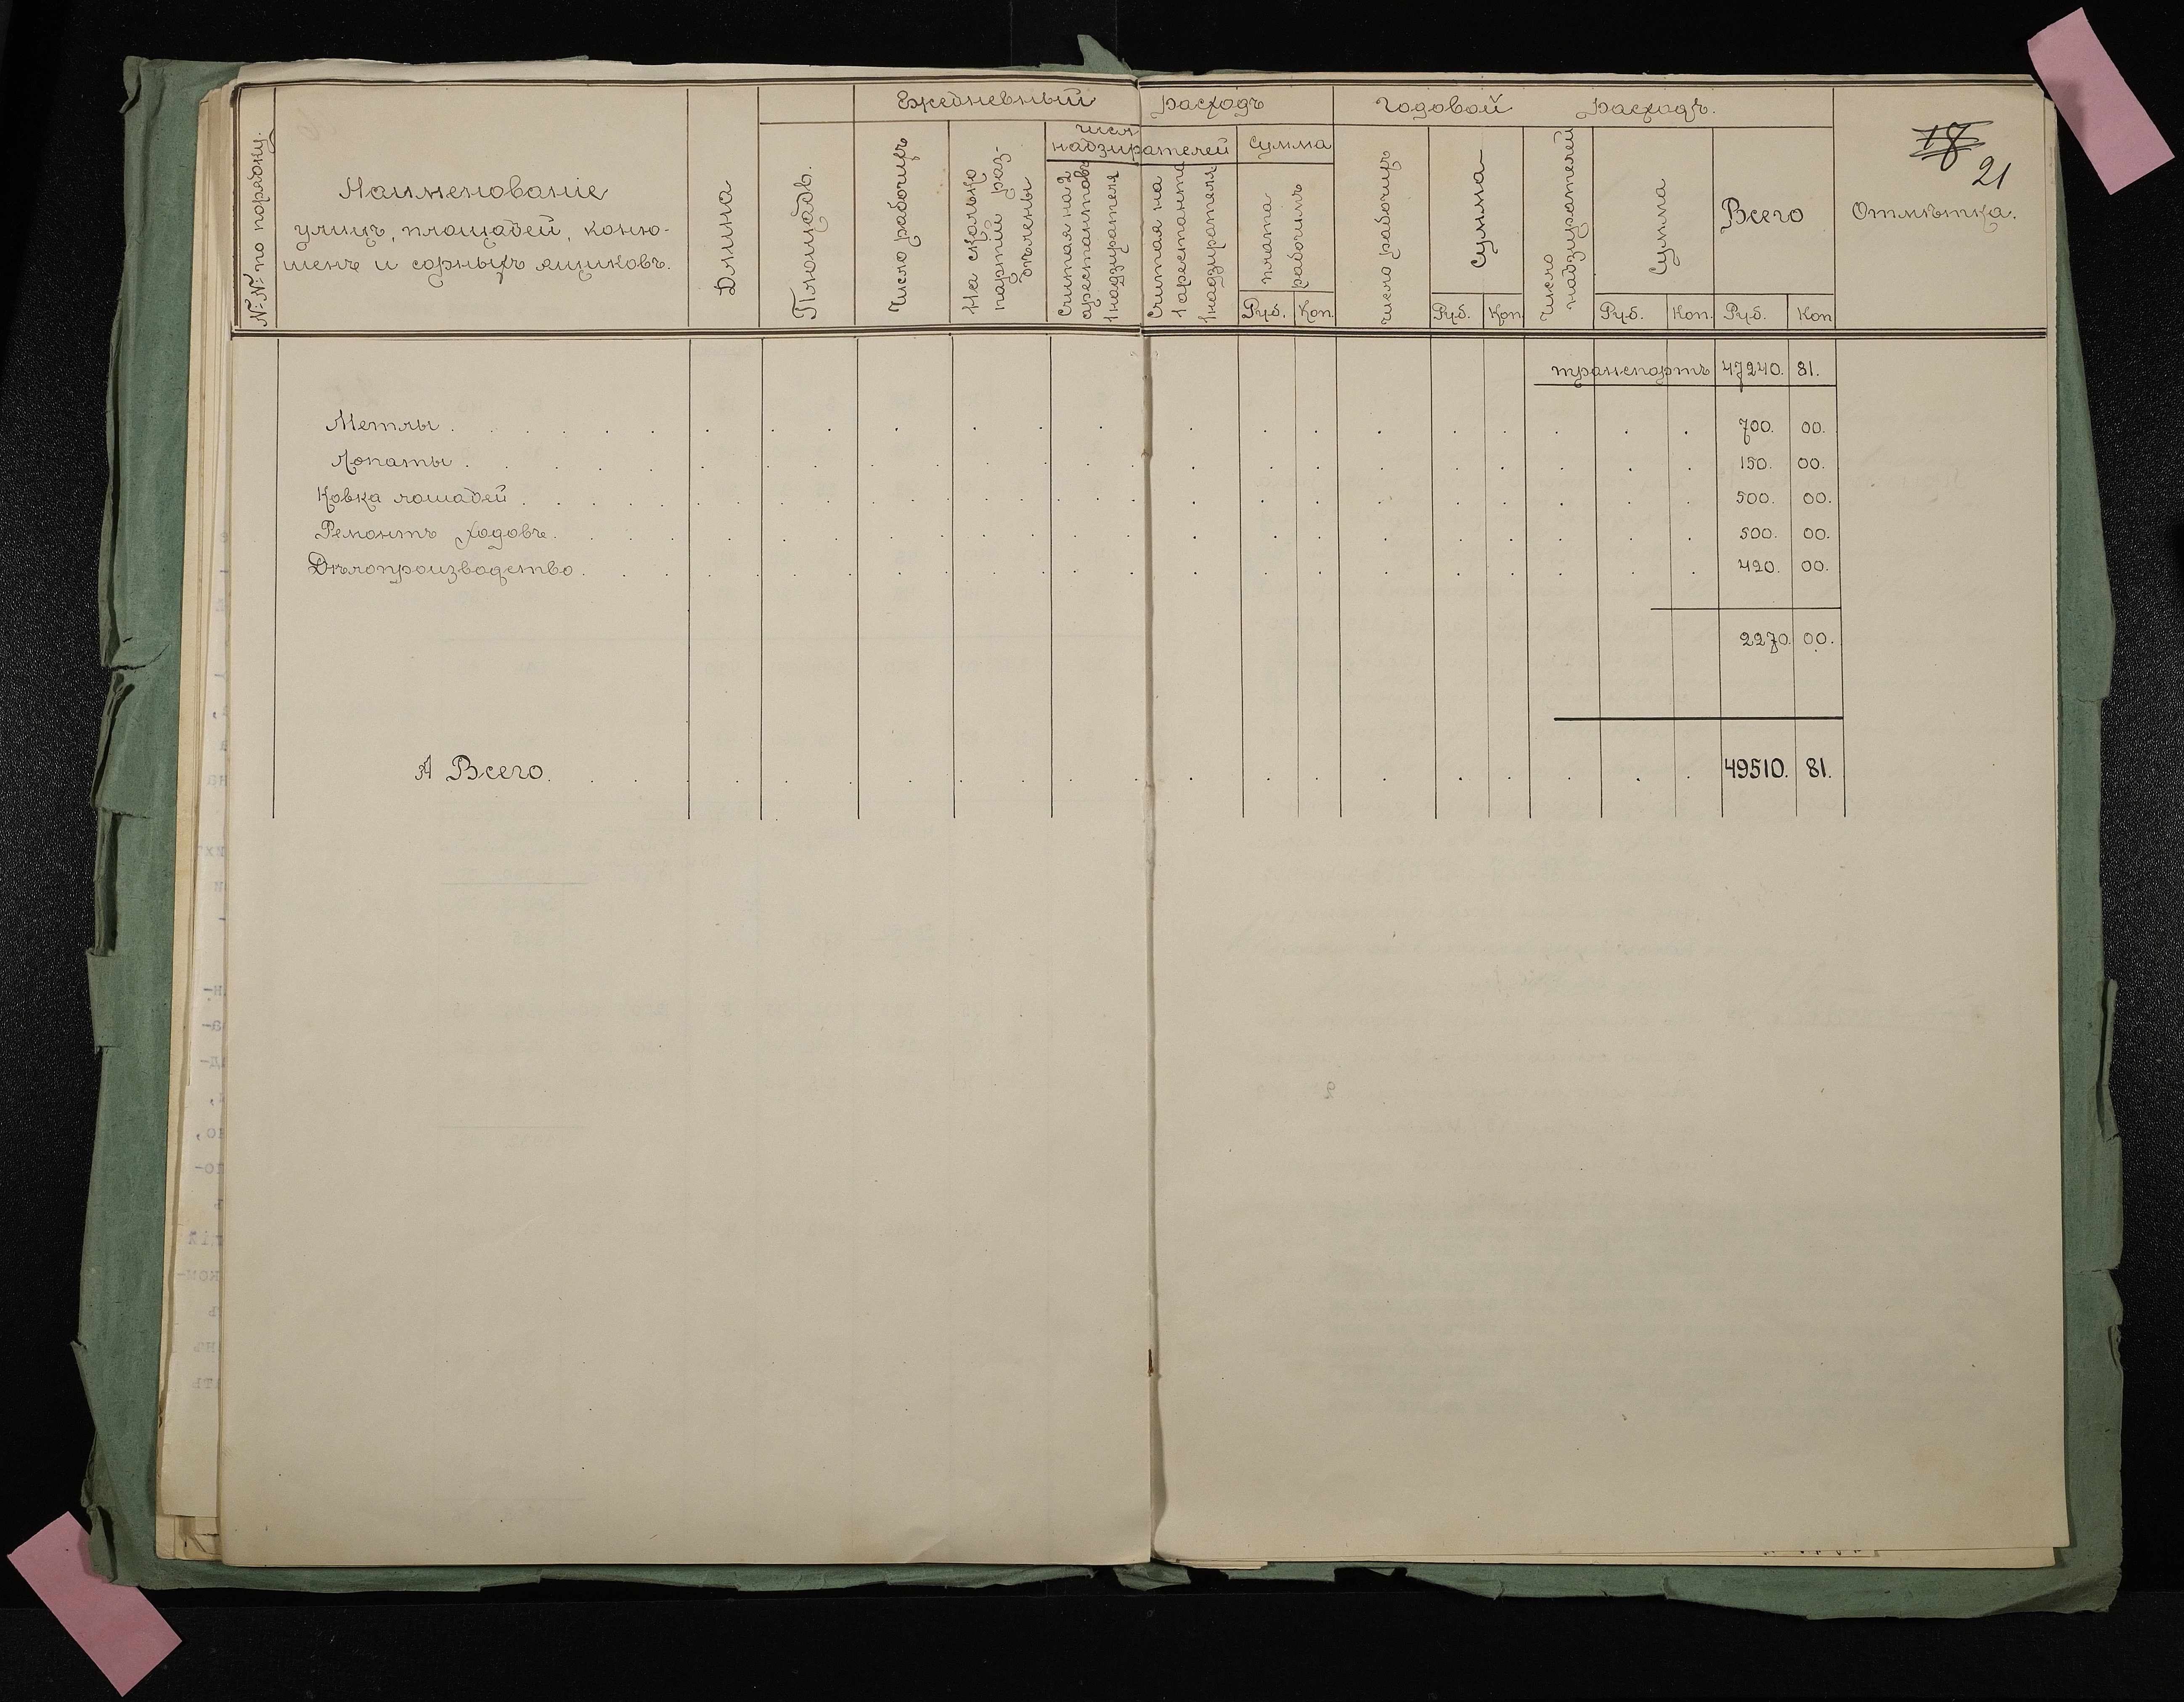 №№ по порядку.
Наименованіе
улицъ, площадей, коню-
шенъ и сорныхъ ящиковъ.
Длина
Площадь.
Ежедневный расходъ
Число рабочихъ
На сколько
партій раз-
дѣлены
число
надзирателей
Считая на 2
арестантовъ
1 надзирателя
Считая на
1 арестанта
1 надзирателя
Сумма
плата
рабочимъ
Руб. Коп.
Годовой расходъ.
Число рабочихъ
Сумма
Руб. Коп
Число
надзирателей
Сумма
Руб. Коп.
Всего
Руб. Коп
18
21
Отмѣтка.
транспортъ 47240. 81.
Метлы . . . . . . 700. 00.
Лопаты . . . . . 150. 00.
Ковка лошадей . . . . . 500. 00.
Ремонтъ ходовъ. . . . 500. 00.
Дѣлопроизводство. . . . 420. 00.
2270. 00.
А Всего. . . . 49510. 81.